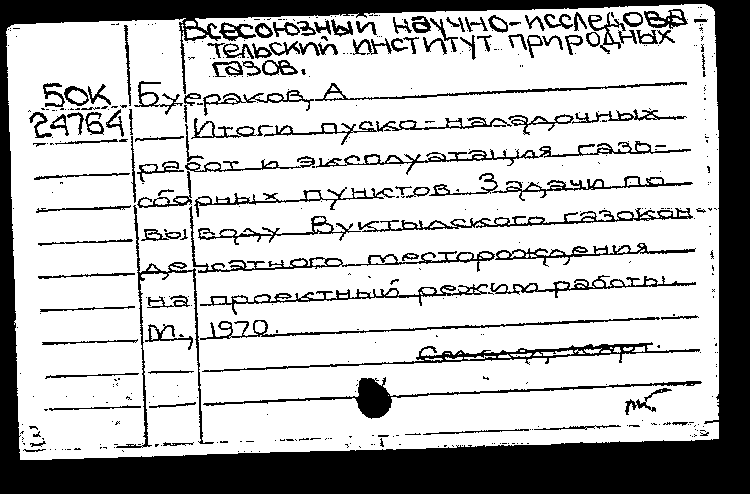 Всесоюзный научно-исследова-
тельский институт природных
газов.
50К Буераков, А
24764 Итоги пуско-наладочных
работ и эксплуатация газо-
сборных пунктов. Задачи по
выводу Вуктыльского газокон-
денсатного месторождения
на проектный режим работы.
М., 1970.
карт.